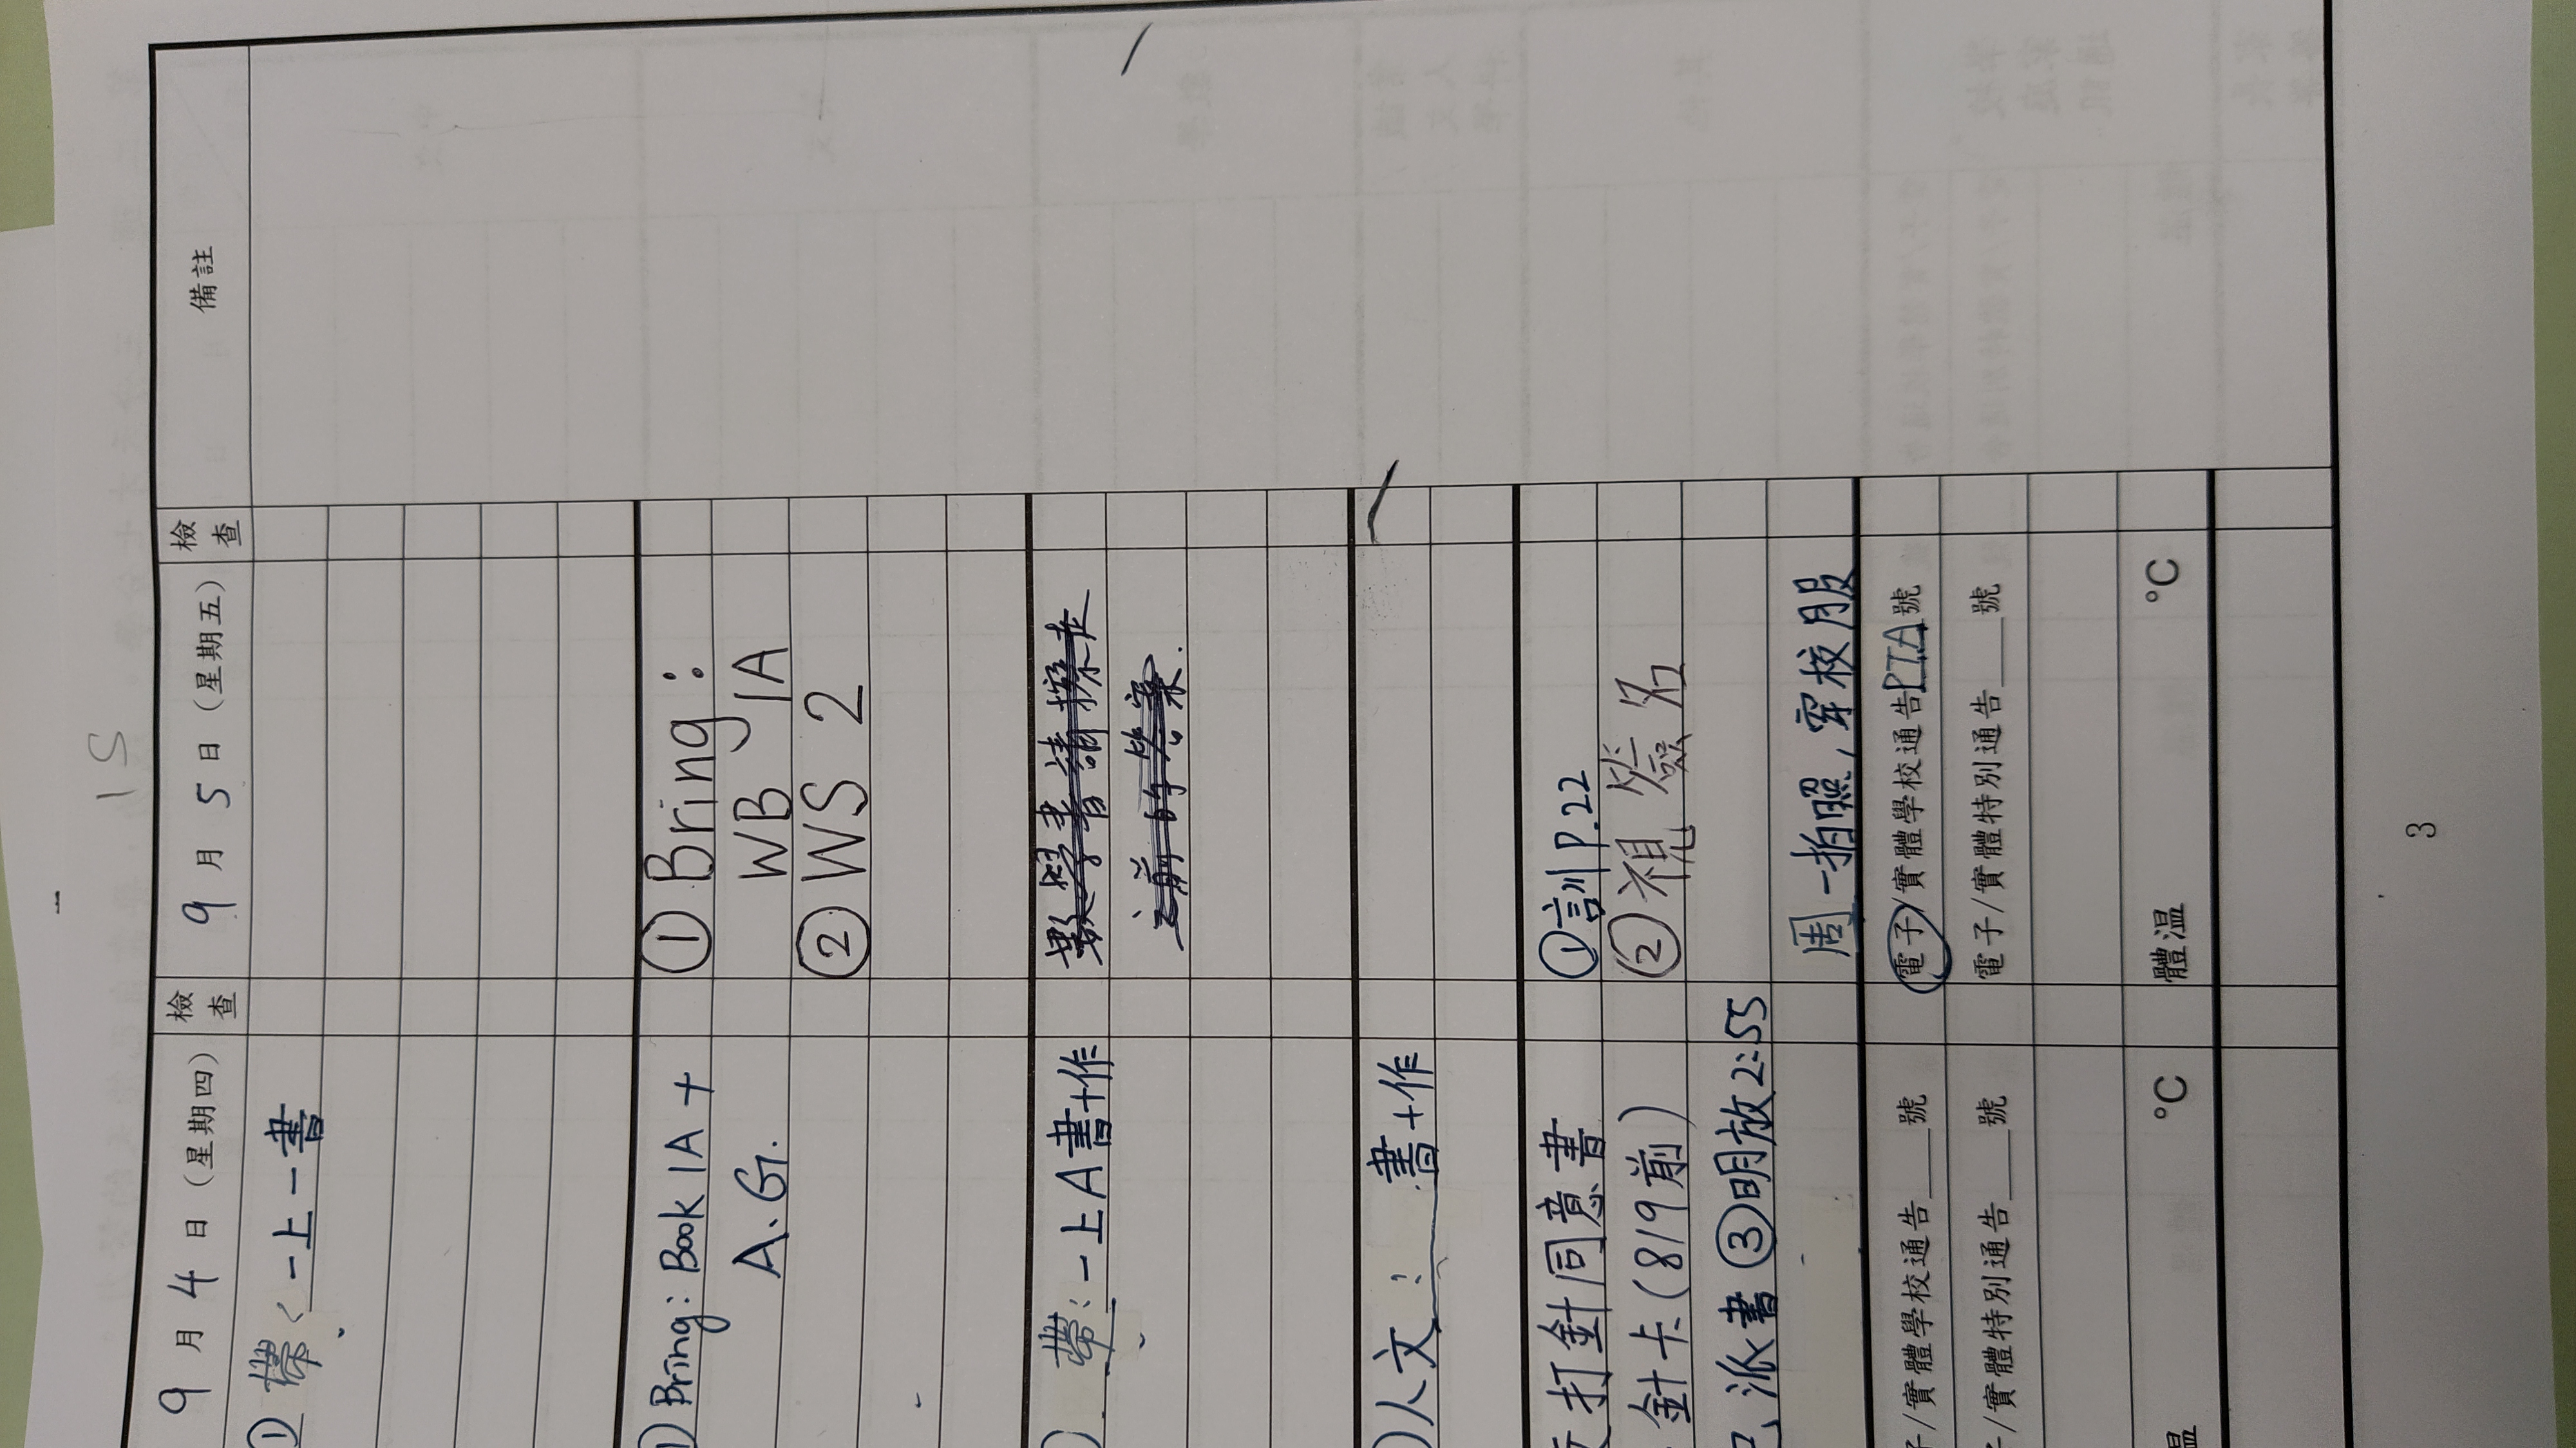 9月4日（星期四）
檢查
9月5日（星期五）
檢查
備註
① 帶：一上一書
① Bring: Book 1A +
A.G.
① Bring:
WB 1A
② WS 2
帶：一上A書+作
數學書請擦走
之前的答案.
人文：書+作
打針同意書
針卡(8/9前)
派書 ③明放2:55
①訓P.22
② 視簽名
周一拍照,穿校服
/實體學校通告___號
電子/實體學校通告PTA號
/實體特別通告___號
電子/實體特別通告___號
°C
體温 °C
3